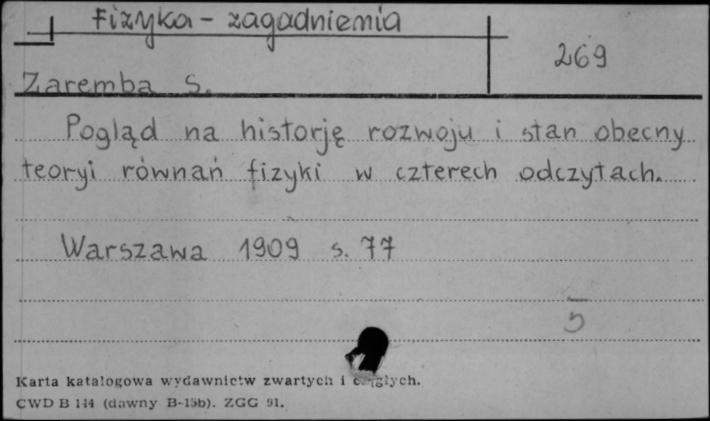 Fizyka - zagadnienia
269
Zaremba S.
Pogląd na historję rozwoju i stan obecny
teoryi równań fizyki w czterech odczytach.
Warszawa 1909 s. 77
5
Karta katalogowa wydawnictw zwartych i
CWD B 144 (dawny B-15b). ZGG 91.